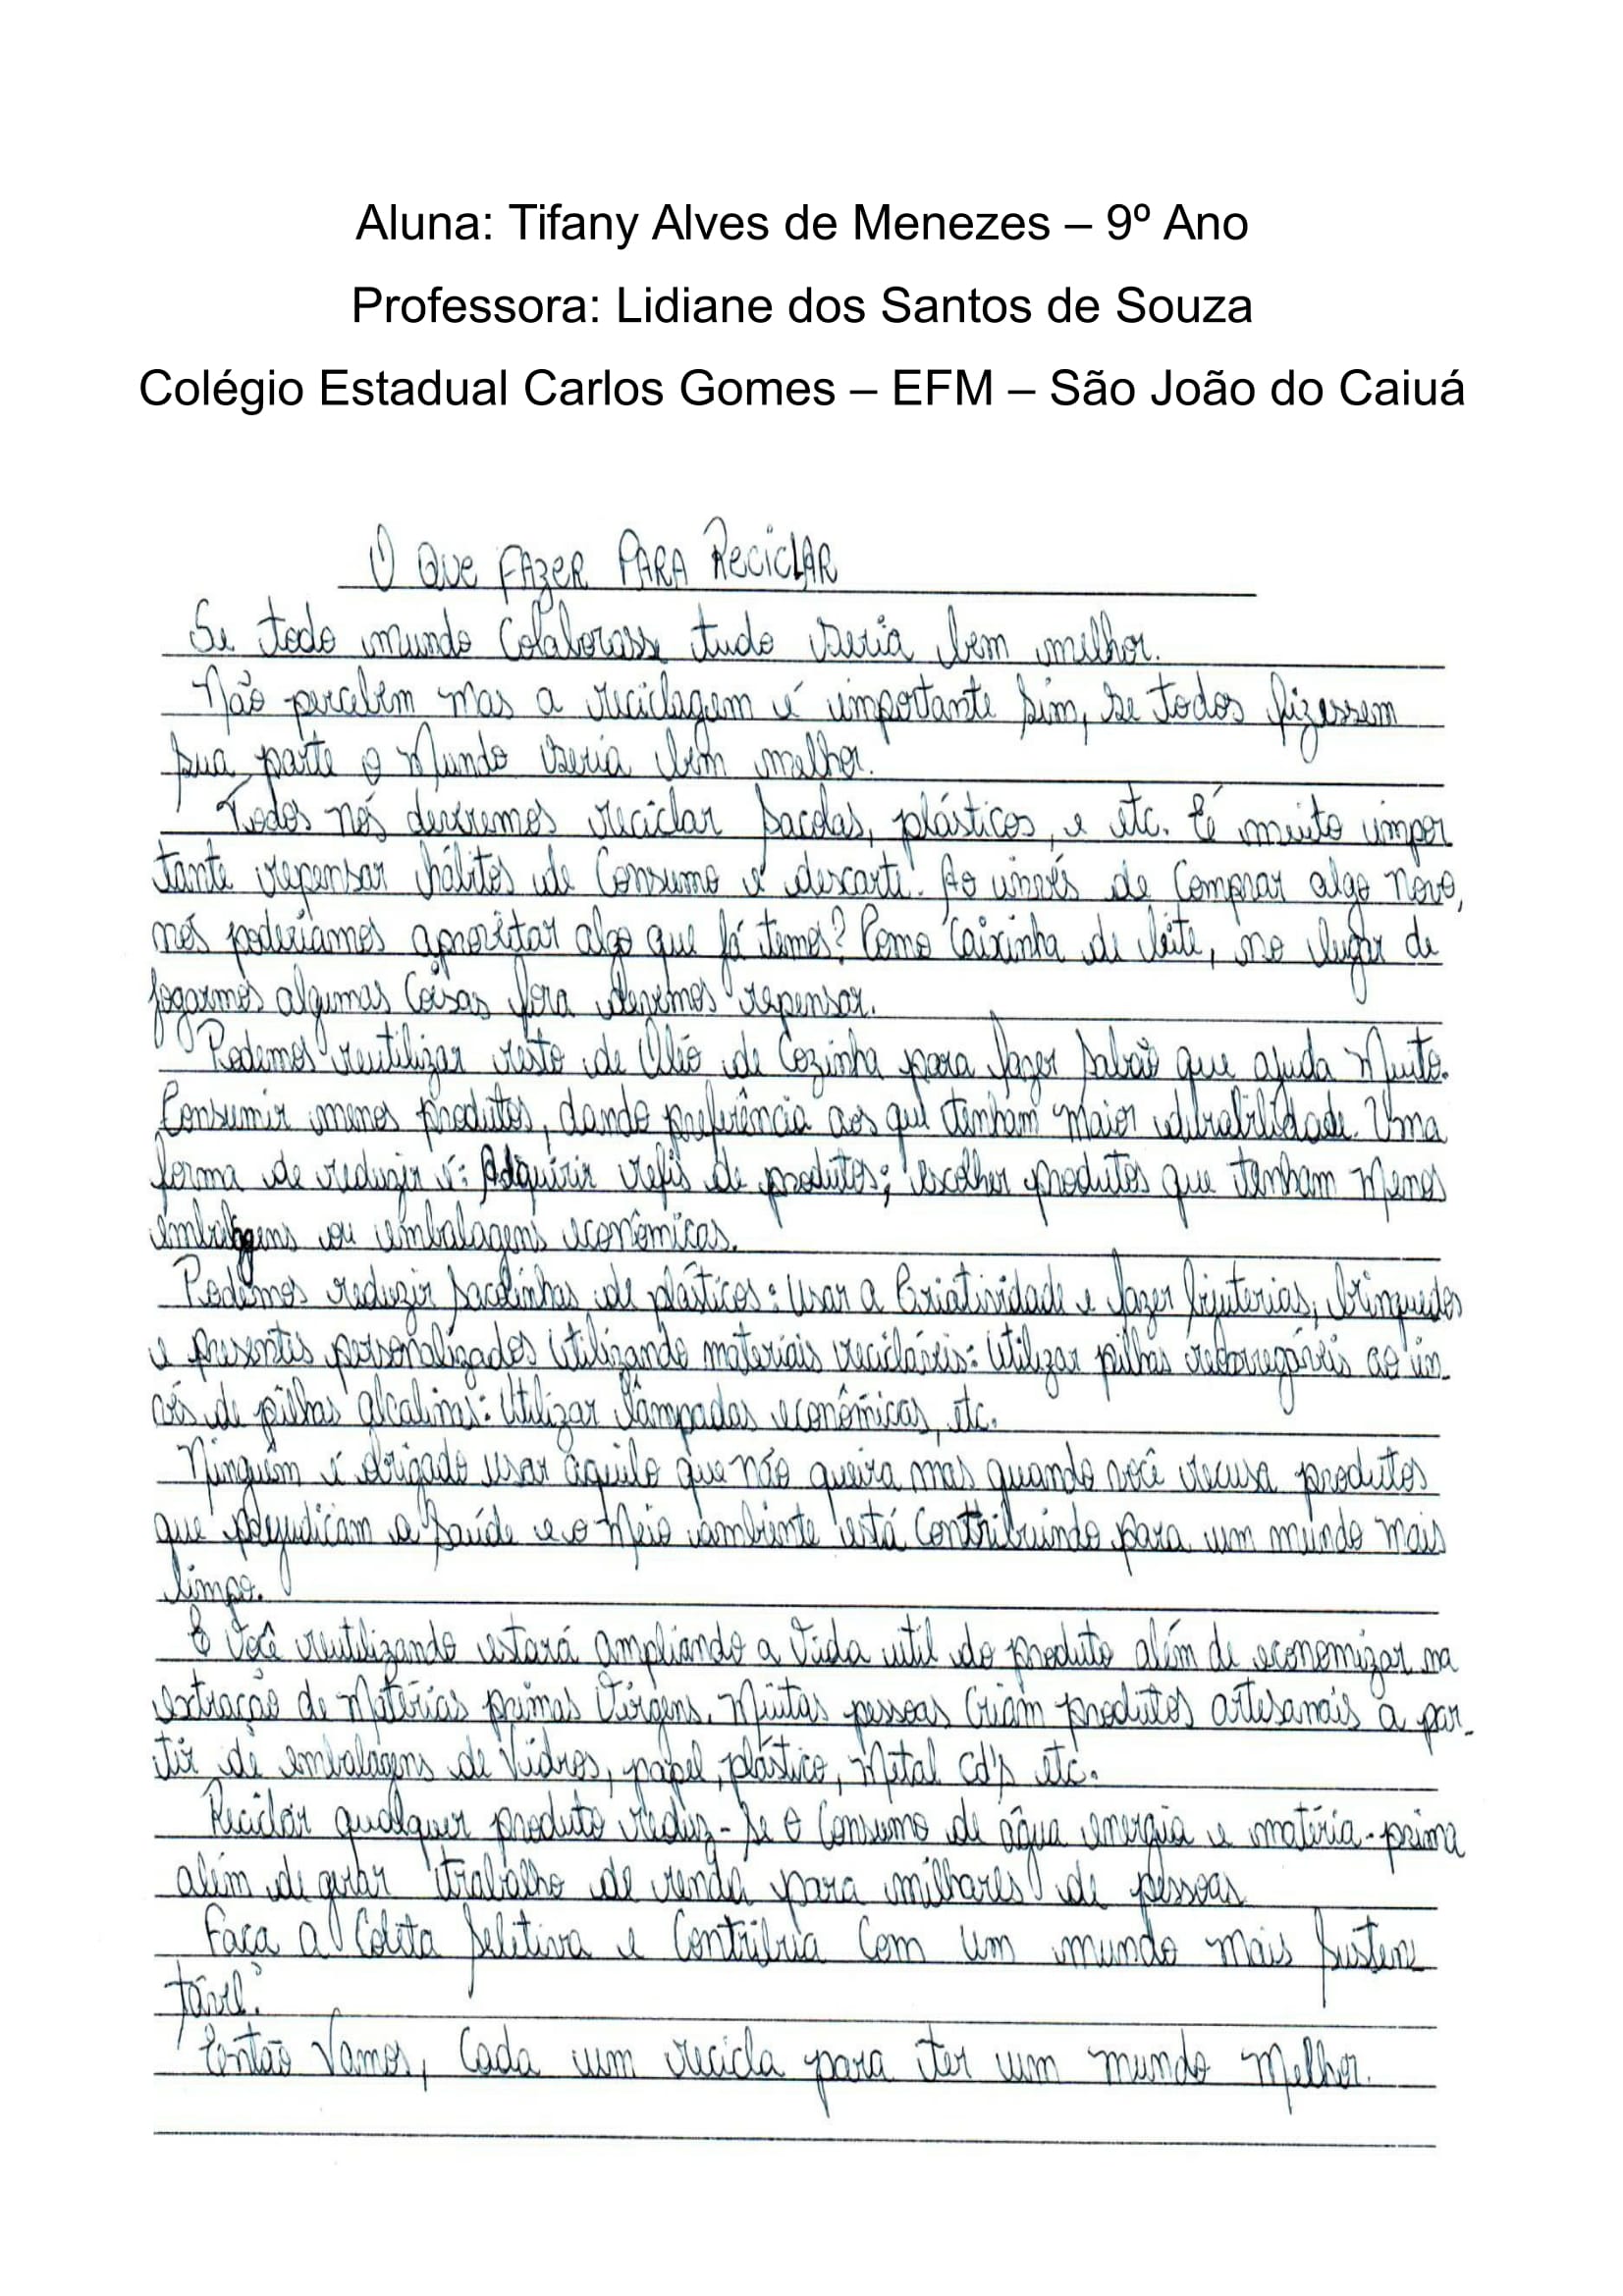 Aluna: Tifany Alves de Menezes – 9º Ano
Professora: Lidiane dos Santos de Souza
Colégio Estadual Carlos Gomes – EFM – São João do Caiuá
O QUE FAZER PARA RECICLAR
Se todo mundo colaborasse tudo seria bem melhor.
Não percebem mas a reciclagem é importante sim, se todos fizessem
sua parte o Mundo seria bem melhor.
Todos nós devemos reciclar sacolas, plásticos, e etc. É muito impor
tante repensar hábitos de Consumo e descarte. Ao invés de Comprar algo novo,
nós poderíamos aproveitar algo que já temos? Como Caixinha de leite, no lugar de
jogarmos algumas Coisas fora devemos repensar.
Podemos reutilizar resto de Oléo de Cozinha para fazer Sabão que ajuda Muito.
Consumir menos produtos, dando preferência aos que tenham maior durabilidade. Uma
forma de reduzir é: Adquirir refis de produtos; escolher produtos que tenham Menos
embalagens ou embalagens econômicas.
Podemos reduzir sacolinhas de plásticos: Usar a Criatividade e fazer bijuterias, brinquedos
e presentes personalizados utilizando materiais recicláveis: Utilizar pilhas recarregáveis ao in-
vés de pilhas alcalinas: Utilizar lâmpadas econômicas, etc.
Ninguém é obrigado usar aquilo que não queira mas quando você recusa produtos
que prejudicam a Saúde e o Meio ambiente está Contribuindo para um mundo mais
limpo.
E Você reutilizando estará ampliando a Vida util do produto além de economizar na
extração de Matérias primas Virgens. Muitas pessoas Criam produtos artesanais a par-
tir de embalagens de Vidros, papel, plástico, Metal cd's etc.
Reciclar qualquer produto reduz-se o Consumo de água energia e matéria-prima
além de gerar trabalho de renda para milhares de pessoas
Faça a Coleta Seletiva e Contribua Com um mundo mais Susten
tável.
Então Vamos, Cada um recicla para ter um mundo Melhor.